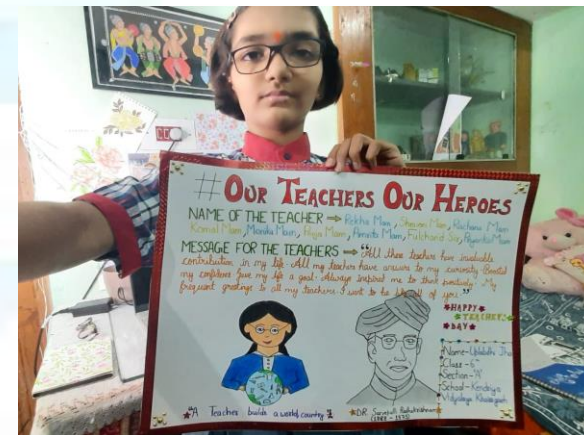 #OUR TEACHERS OUR HEROES
NAME OF THE TEACHER ⇒ Rekha Mam, Sharon Mam, Rachana Mam
Komal Mam, Monika Mam, Pooja Mam, Amrita Mam, Fulchand Sir, Priyanka Mam
MESSAGE FOR THE TEACHERS ⇒ "All these teachers have invaluable
contribution in my life. All my teachers have answer to my curiosity. Boosted
my confidence gave my life a goal. Always inspired me to think positively. My
frequent greetings to all my teachers. I want to be like all of you."
*HAPPY*
*TEACHER'S
*DAY*
Name- Jha
Class - 6th
Section - 'A'
School - Kendriya
Vidyalaya
"A Teacher builds a world, country"
*DR. Sarvepalli Radhakrishnan
(1888 - 1975)